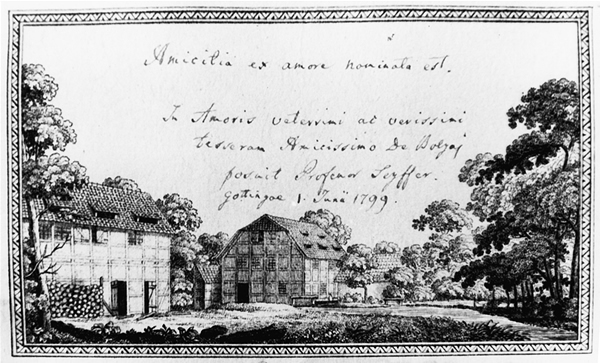 Amicitia ex amore nominata est.
In Amoris veterrimi ac verissimi
tesseram Amicissimo De Bolyaj
posuit Professor Seyffer.
Gottingae 1. Junii 1799.